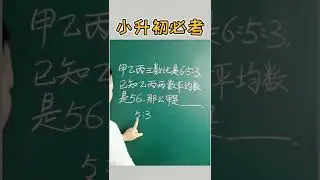 小升初必考
甲乙丙三数比是6:5:3,
已知乙丙两数平均数
是56.那么甲是____
5:3
5:3